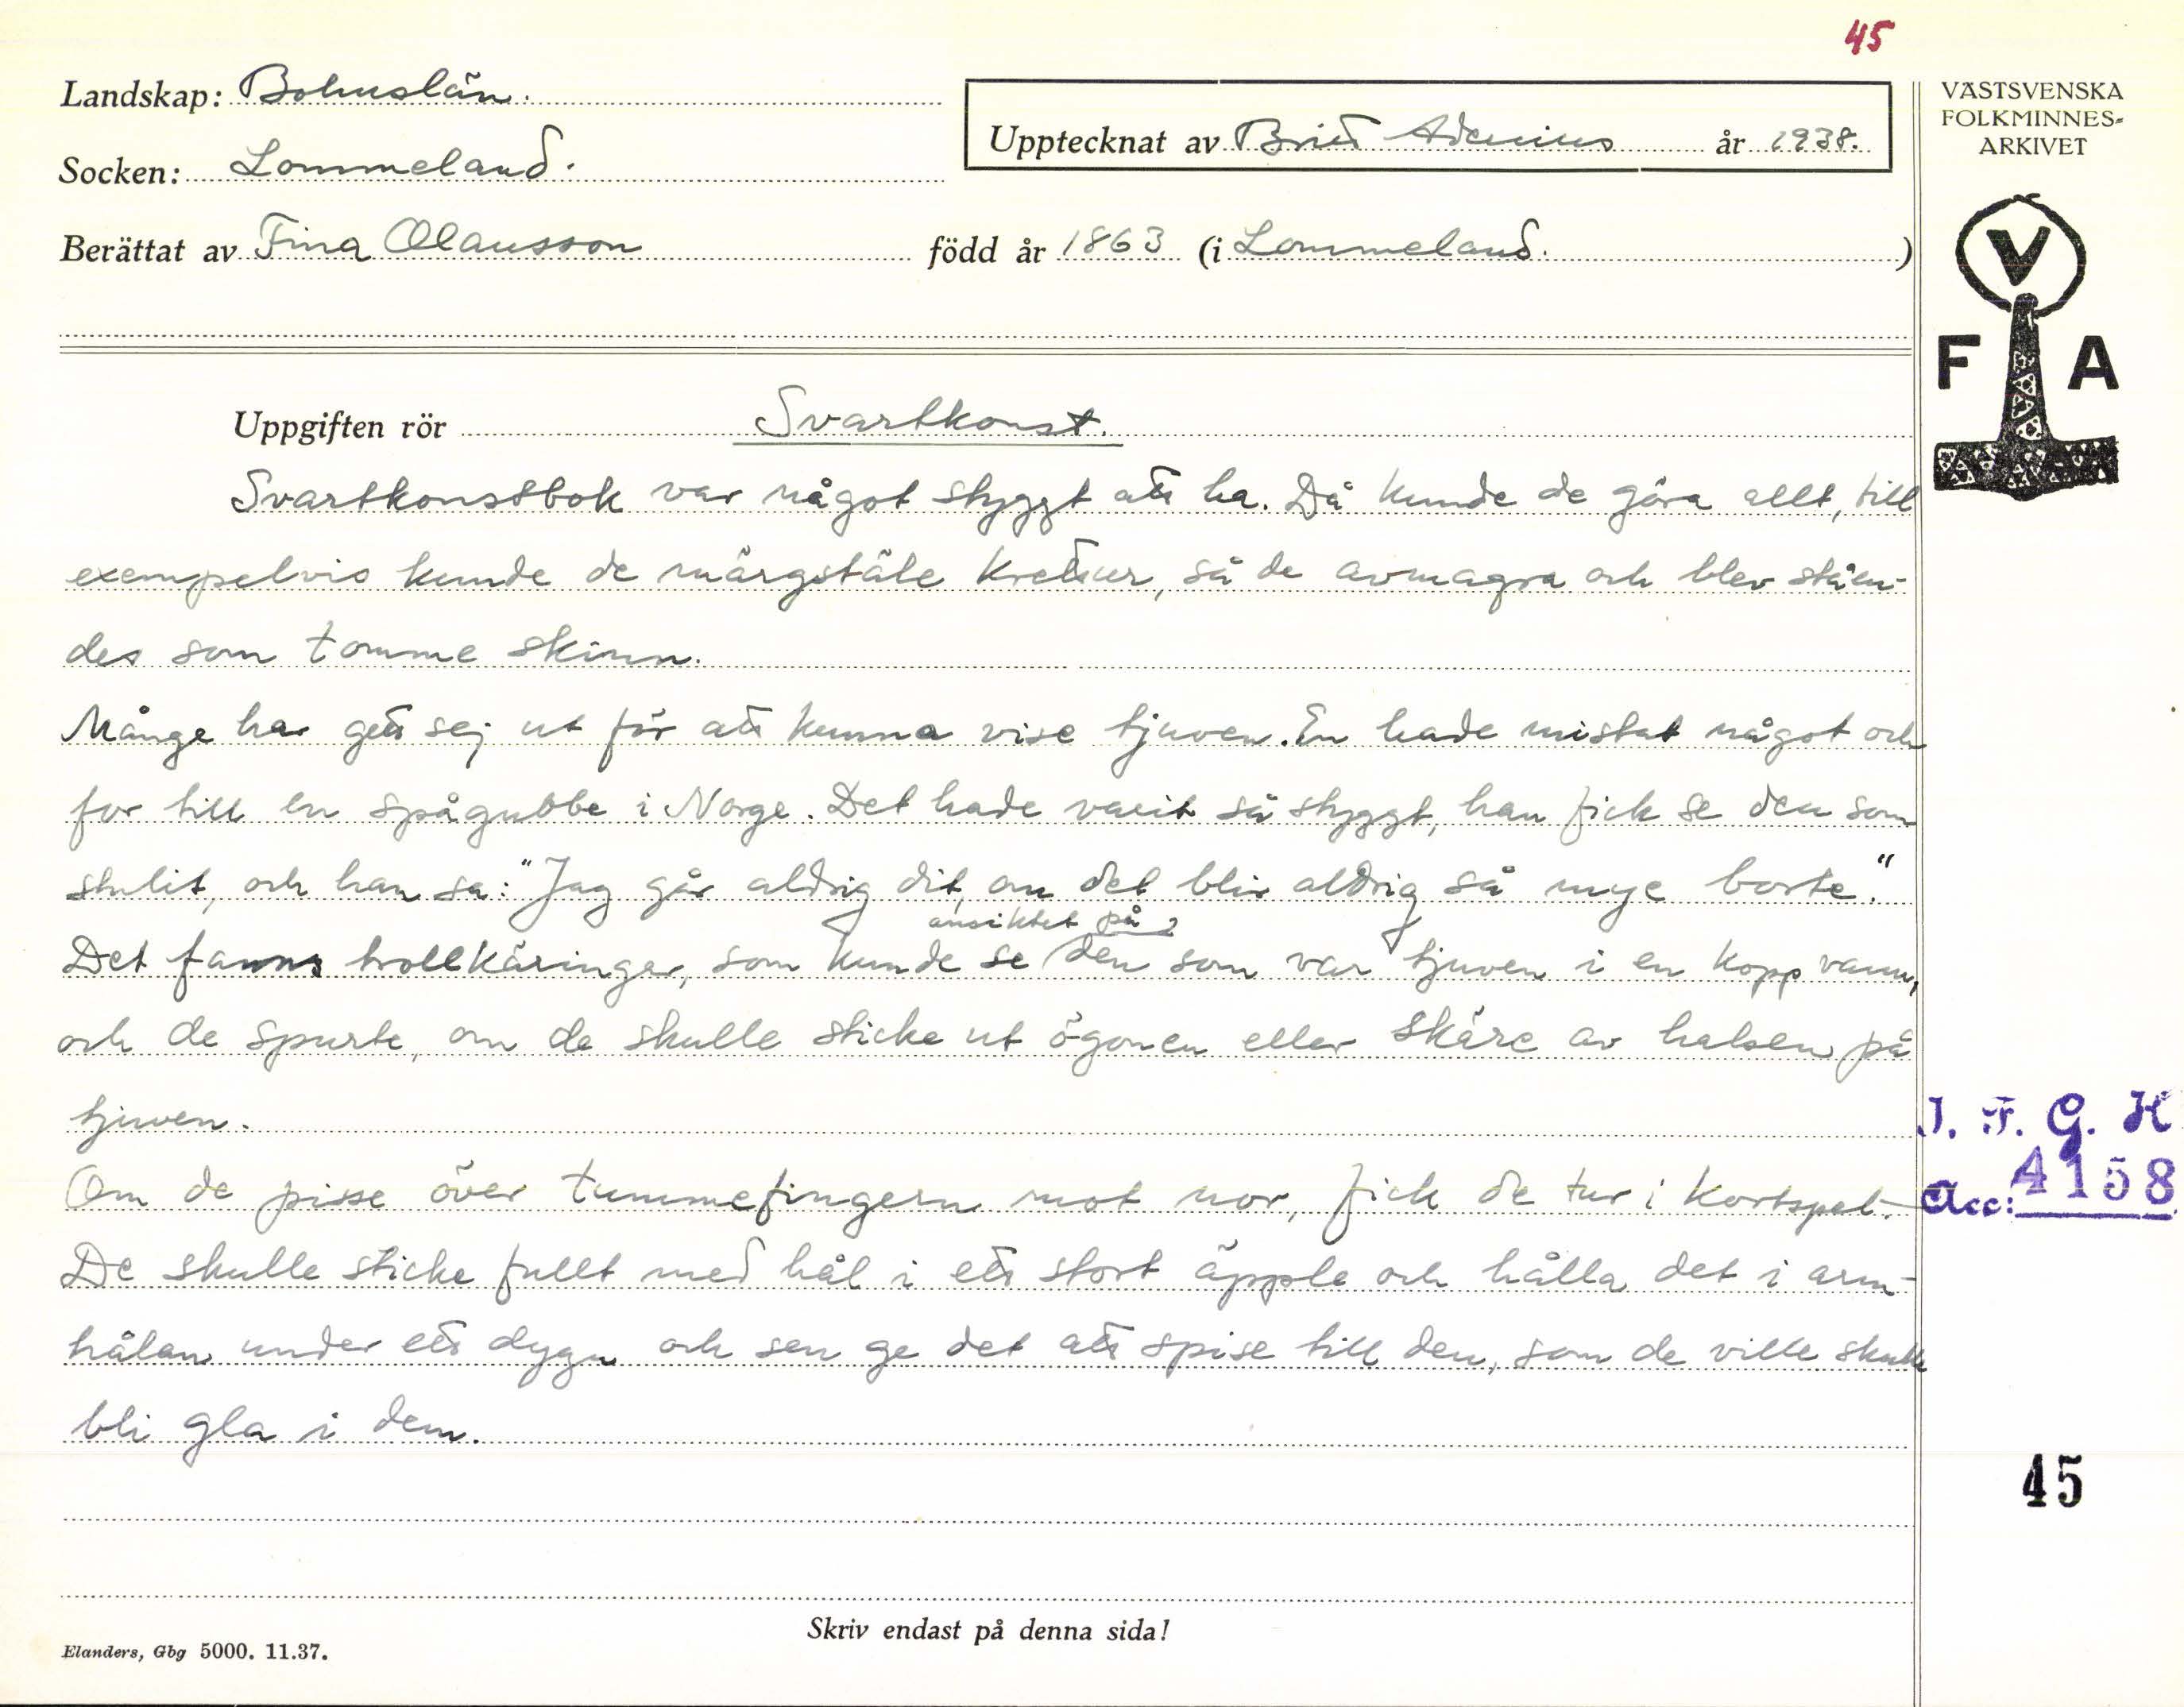 45
Landskap: Bohuslän.
Upptecknat av Britt Adenius år 1938.
Socken: Lommeland.
Berättat av Fina Olausson född år 1863 (i Lommeland.)
VÄSTSVENSKA
FOLKMINNES-
ARKIVET
V
F A
Uppgiften rör Svartkonst.
Svartkonstbok var något styggt att ha. Då kunde de göra allt, till
exempelvis kunde de märgstäle kretur, så de avmagra och blev ståen-
des som tomme skinn.
Många har gett sej ut för att kunna vise tjuven. En hade mistat något och
for till en spågubbe i Norge. Det hade varit så styggt, han fick se den som
stulit, och han sa: "Jag går aldrig dit, om det blir aldrig så mye borte."
ansiktet på
Det fanns trollkäringer, som kunde se den som var tjuven i en kopp vann,
och de spurte, om de skulle sticke ut ögonen eller skäre av halsen på
tjuven.
Om de pisse över tummefingern mot nor, fick de tur i kortspel.
De skulle sticke fullt med hål i ett stort äpple och hålla det i arm-
hålan under ett dygn och sen ge det att spise till den, som de ville skulle
bli gla i dem.
I. F. G. H
Acc: 4158
45
Skriv endast på denna sida!
Elanders, Gbg 5000. 11.37.